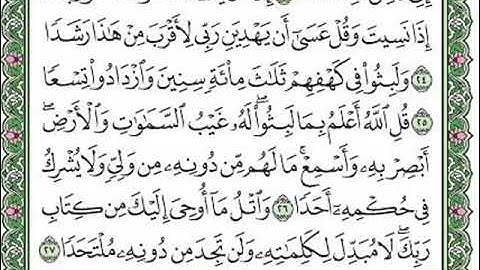 إِذَا نَسِيتَ وَقُلْ عَسَىٰ أَن يَهْدِيَنِ رَبِّى لِأَقْرَبَ مِنْ هَٰذَا رَشَدًا
٢٤ وَلَبِثُوا۟ فِى كَهْفِهِمْ ثَلَٰثَ مِا۟ئَةٍ سِنِينَ وَٱزْدَادُوا۟ تِسْعًا
٢٥ قُلِ ٱللَّهُ أَعْلَمُ بِمَا لَبِثُوا۟ ۖ لَهُۥ غَيْبُ ٱلسَّمَٰوَٰتِ وَٱلْأَرْضِ ۖ
أَبْصِرْ بِهِۦ وَأَسْمِعْ ۚ مَا لَهُم مِّن دُونِهِۦ مِن وَلِىٍّ وَلَا يُشْرِكُ
فِى حُكْمِهِۦٓ أَحَدًا ٢٦ وَٱتْلُ مَآ أُوحِىَ إِلَيْكَ مِن كِتَابِ
رَبِّكَ ۖ لَا مُبَدِّلَ لِكَلِمَٰتِهِۦ وَلَن تَجِدَ مِن دُونِهِۦ مُلْتَحَدًا ٢٧